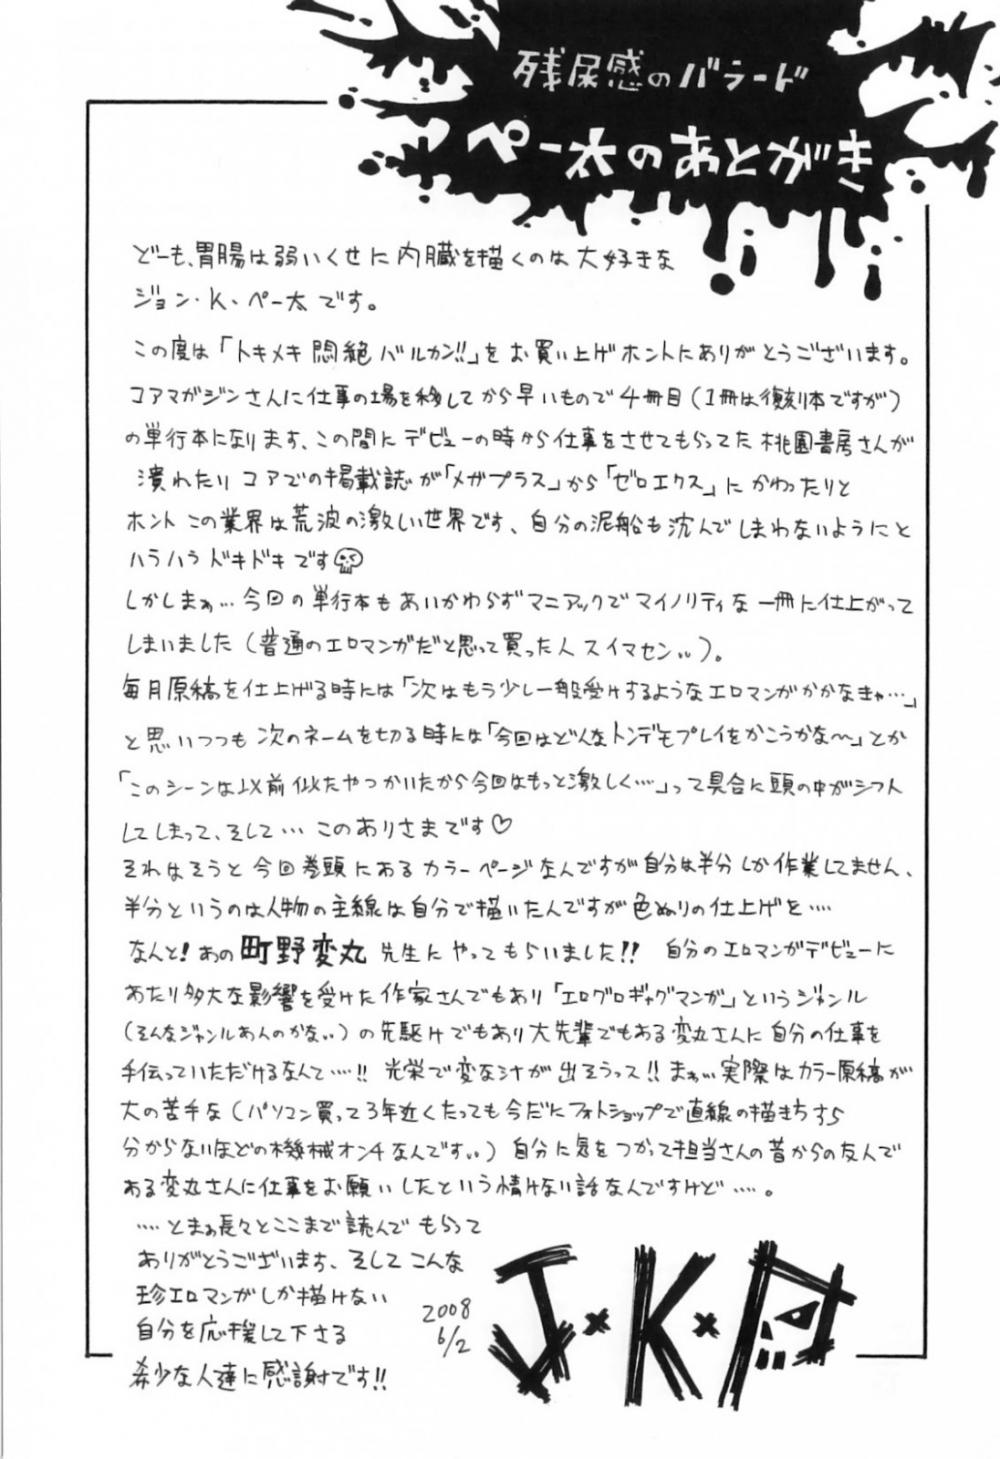 残尿感のバラード
ペー太のあとがき
どーも、胃腸は弱いくせに内臓を描くのは大好きな
ジョン・K・ペー太です。
この度は「トキメキ悶絶バルカン!!」をお買い上げホントにありがとうございます。
コアマガジンさんに仕事の場を移してから早いもので4冊目(1冊は復刻本ですが)
の単行本になります、この間にデビューの時から仕事をさせてもらってた桃園書房さんが
潰れたりコアでの掲載誌が「メガプラス」から「ゼロエクス」にかわったりと
ホントこの業界は荒波の激しい世界です、自分の泥船も沈んでしまわないようにと
ハラハラドキドキです
しかしまぁ…今回の単行本もあいかわらずマニアックでマイノリティな一冊に仕上がって
しまいました(普通のエロマンガだと思って買った人スイマセン..)。
毎月原稿を仕上げる時には「次はもう少し一般受けするようなエロマンガかかなきゃ…」
と思いつつも次のネームを切る時には「今回はどんなトンデモプレイをかこうかな〜」とか
「このシーンは以前似たやつかいたから今回はもっと激しく‥‥」って具合に頭の中がシフト
してしまって、そして…このありさまです♡
それはそうと今回巻頭にあるカラーページなんですが自分は半分しか作業してません、
半分というのは人物の主線は自分で描いたんですが色ぬりの仕上げを‥‥
なんと!あの町野変丸先生にやってもらいました!! 自分のエロマンガデビューに
あたり多大な影響を受けた作家さんでもあり「エログロギャグマンガ」というジャンル
(そんなジャンルあんのかな..)の先駆けでもあり大先輩でもある変丸さんに自分の仕事を
手伝っていただけるなんて‥‥!! 光栄で変な汁が出そうっス!!まぁ…実際はカラー原稿が
大の苦手な(パソコン買って3年近くたっても今だにフォトショップで直線の描き方すら
分からないほどの機械オンチなんです..)自分に気をつかって担当さんの昔からの友人で
ある変丸さんに仕事をお願いしたという情けない話なんですけど‥‥。
‥‥とまぁ長々とここまで読んでもらって
ありがとうございます、そしてこんな
珍エロマンガしか描けない
自分を応援して下さる
希少な人達に感謝です!!
2008
6/2
J×K×P